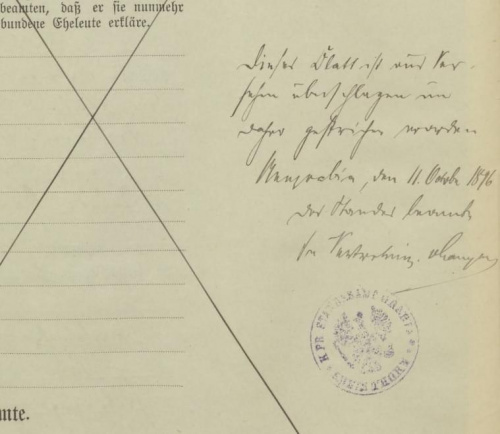 beamten, daß er sie nunmehr
bundene Eheleute erkläre.
Dieses Blatt ist aus Ver-
sehen überschlagen und
daher gestrichen worden
den 11. October 1896
Der Standesbeamte
In Vertretung.
mte.